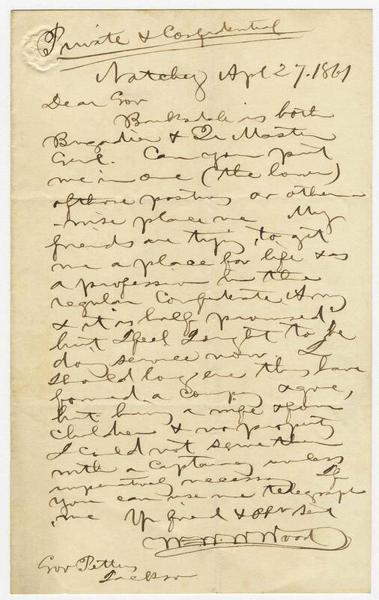 Private & Confidential
Natchez Apl 27. 1861
Dear Gov
Barksdale is both
Brigadier & Qr Master
Genl. Can you put
me in one (the lower)
of those positions or other-
-wise place me My
friends are trying to get
me a place for life & as
a profession in the
regular Confederate Army
& it is half promised,
but I feel I ought to be
doing service now. I
should long ere this have
formed a company & gone,
but having a wife & four
children & no property
I could not serve them
with a Captaincy unless
imperatively necessary If
you can use me telegraph
me Yr friend & obt Svt
Wood
Gov Pettus
Jackson